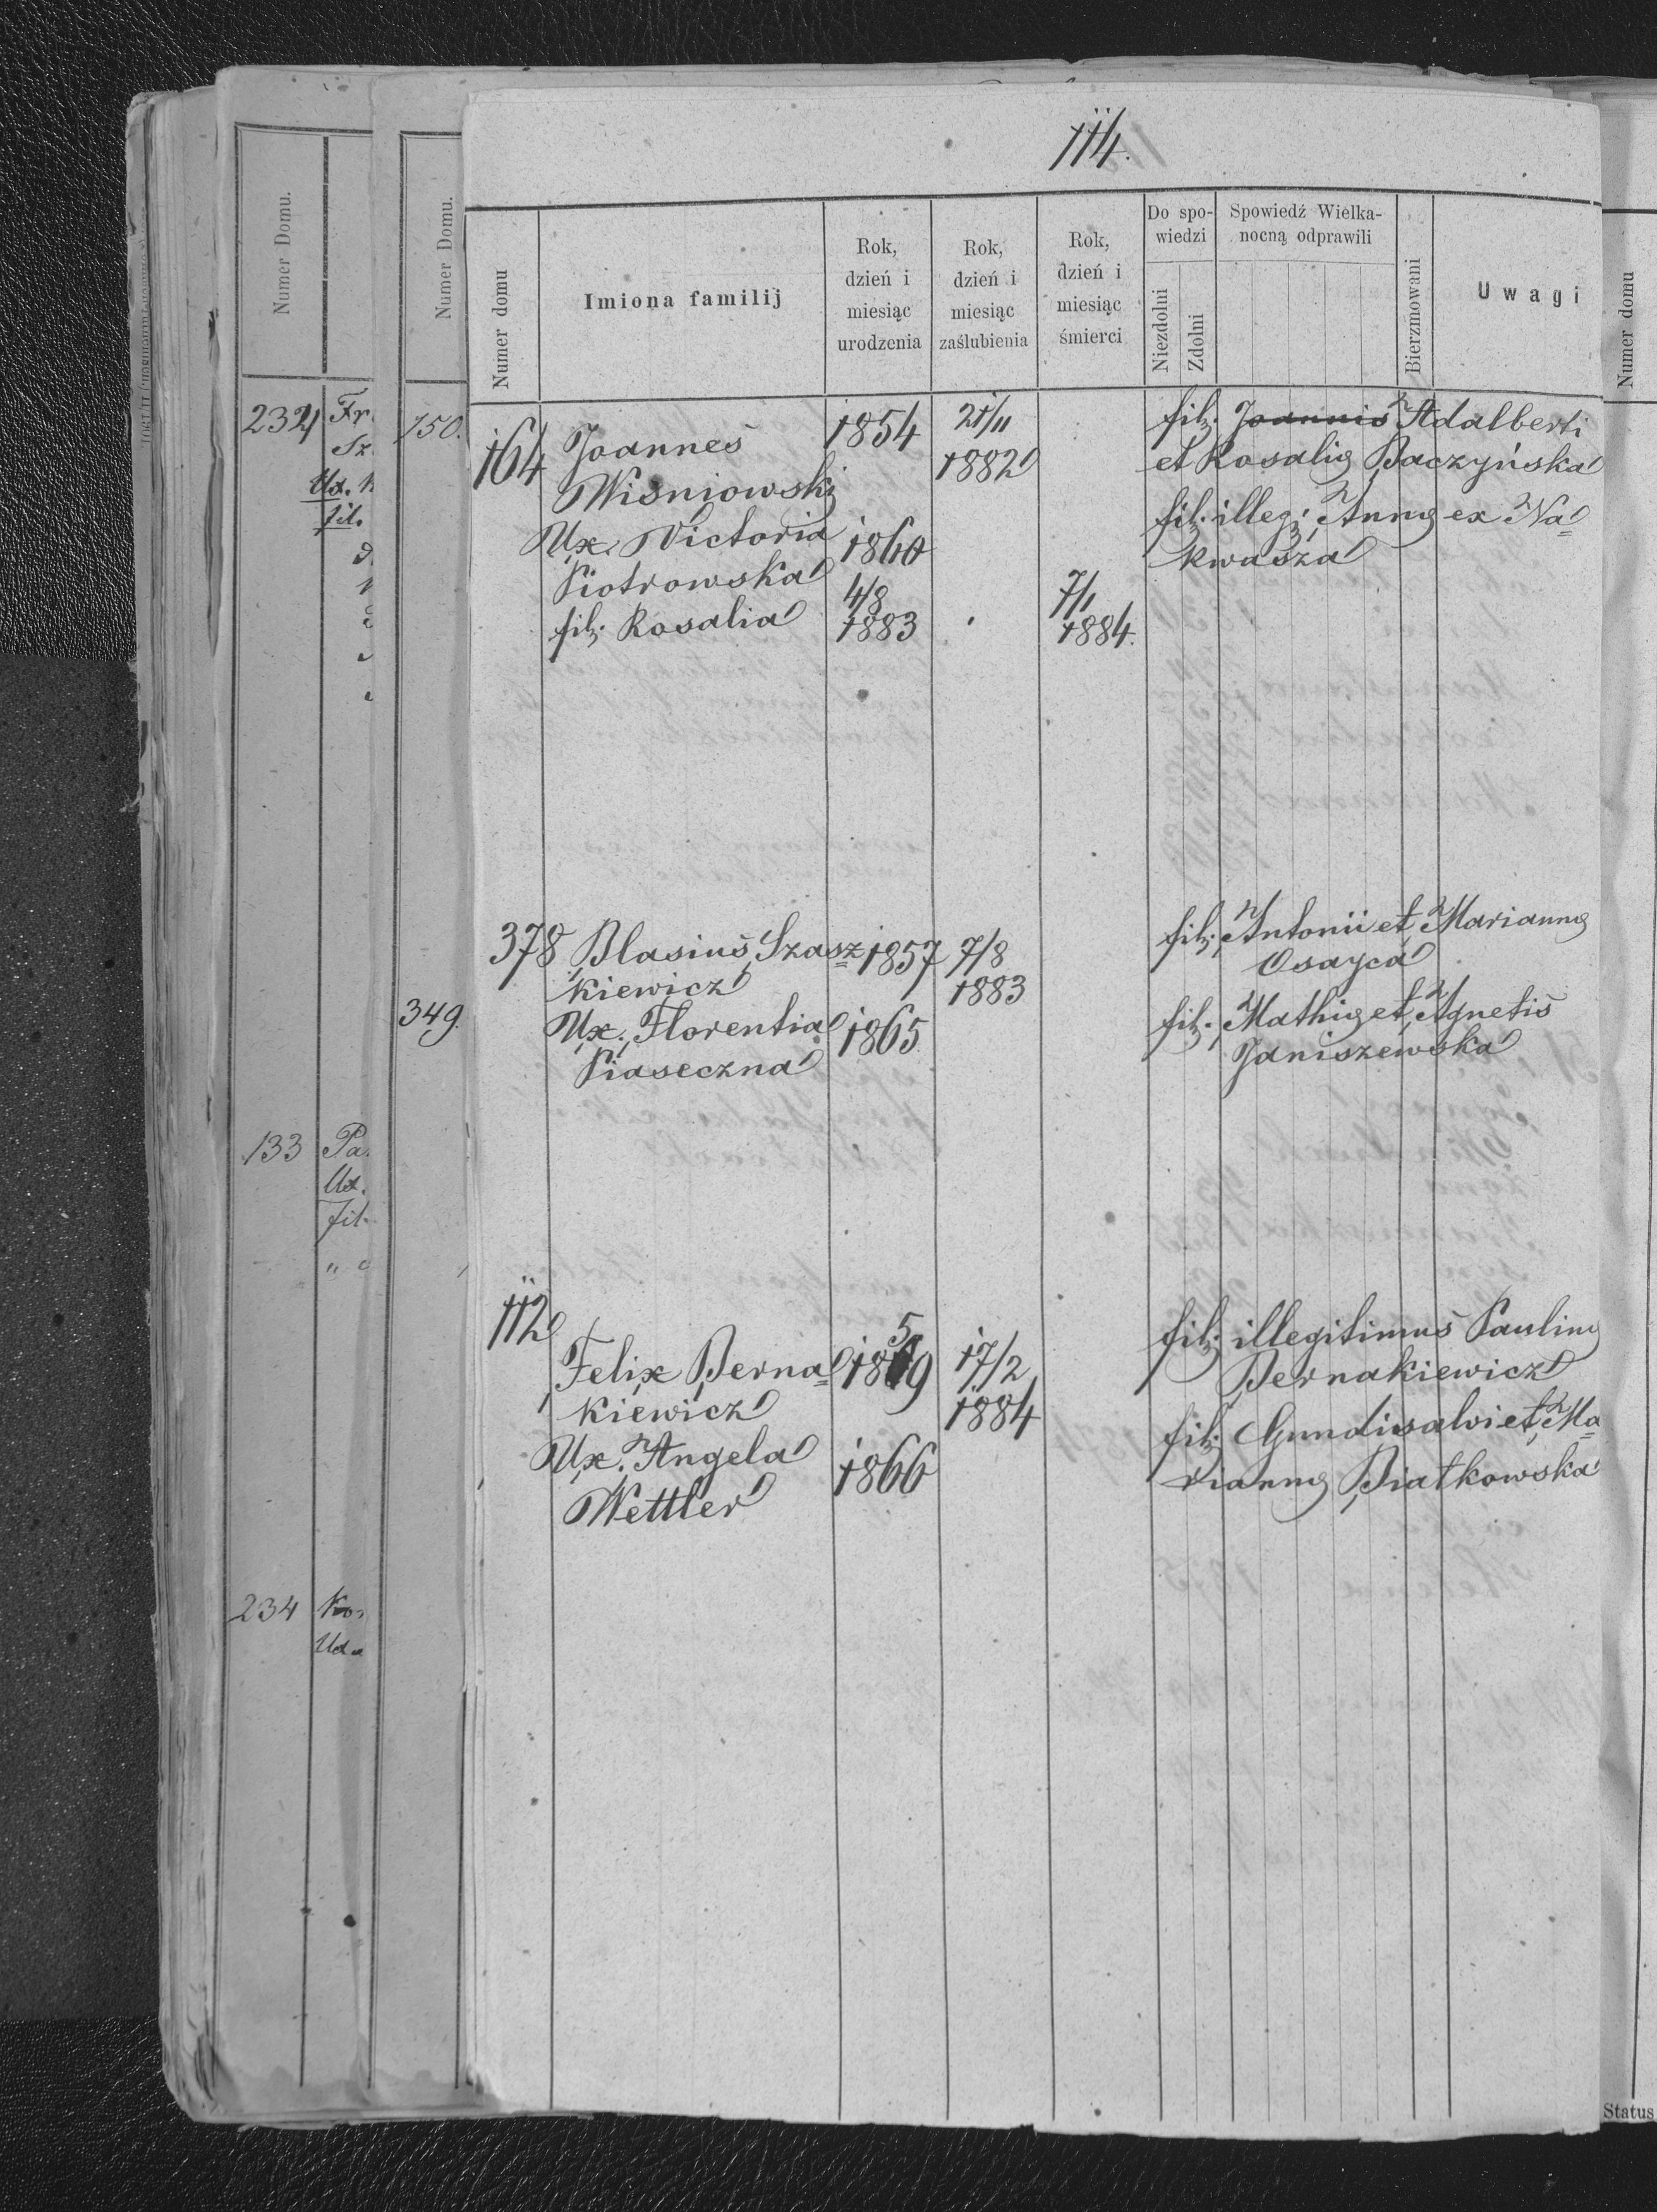 114.
Numer domu
Imiona familij
Rok,
dzień i
miesiąc
urodzenia
Rok,
dzień i
miesiąc
zaślubienia
Rok,
dzień i
miesiąc
śmierci
Do spo-
wiedzi
Niezdolni
Zdolni
Spowiedź Wielka-
nocną odprawili
Bierzmowani
Uwagi
164 Joannes 1854 21/11 fil. Joannis Adalberti
Wisniowski 1882 et Rosalię Baczyńska
Ux. Victoria 1860 fil. illeg. Annę ex Na=
Piotrowska kwasza
fil. Rosalia 4/8 1883 7/1 1884.
378 Blasius Szasz= 1857 7/8 fil. Antonii et Mariannę
kiewicz 1883 Osayca
Ux. Florentia 1865 fil. Mathię et Agnetis
Piaseczna Janiszewska
112 fil. illegitimus Paulinę
Felix Berna= 1859 17/2 Bernakiewicz
kiewicz 1884
Ux. Angela 1866 fil. Gundisalvi et Ma=
Wettler riannę Białkowska
Numer Domu.
232 Fr.
Sz.
Ux.
fil.
133 Pa.
Ux.
fil.
234 Ko.
Ux.
Numer Domu.
150.
349.
Numer domu
Status